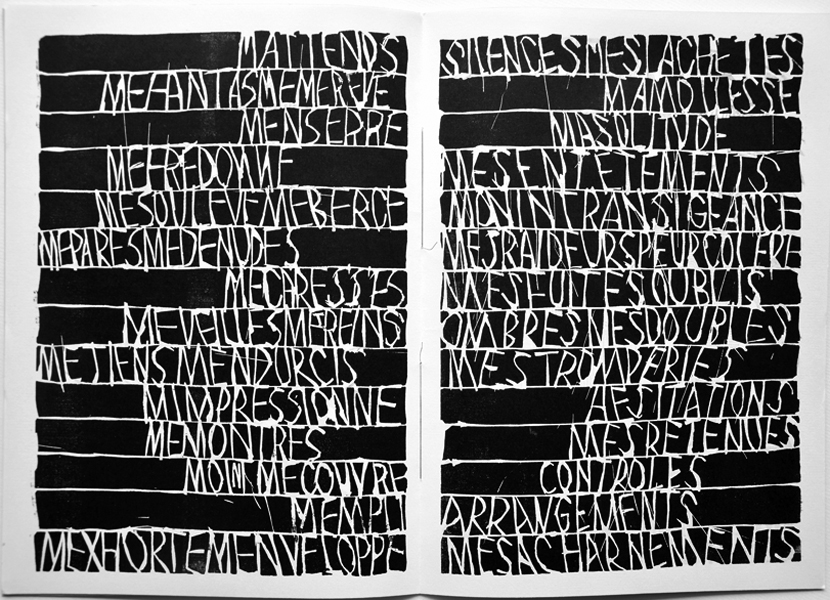 MATTENDS
MEFANTASMEMEREVE
MENSERRE
MEFREDONNE
MESOULEVEMEBERCE
MEPARESMEDENUDES
MECARESSES
MEVEILLESMERETINS
METIENSMENDURCIS
MIMPRESSIONNE
MEMONTRES
MOI MECOUVRE
MEMPLI
MEXHORTEMENVELOPPE
SILENCESMESLACHETES
MAMOLLESSE
MASOLITUDE
MESENTETEMENTS
MONINTRANSIGEANCE
MESRAIDEURSPEURCOLERE
MESFUITESOUBLIS
OMBRESMESDOUBLES
MESTROMPERIES
AFSITATIONS
MESRETENUES
CONTROLES
ARRANGEMENTS
MESACHARNEMENTS